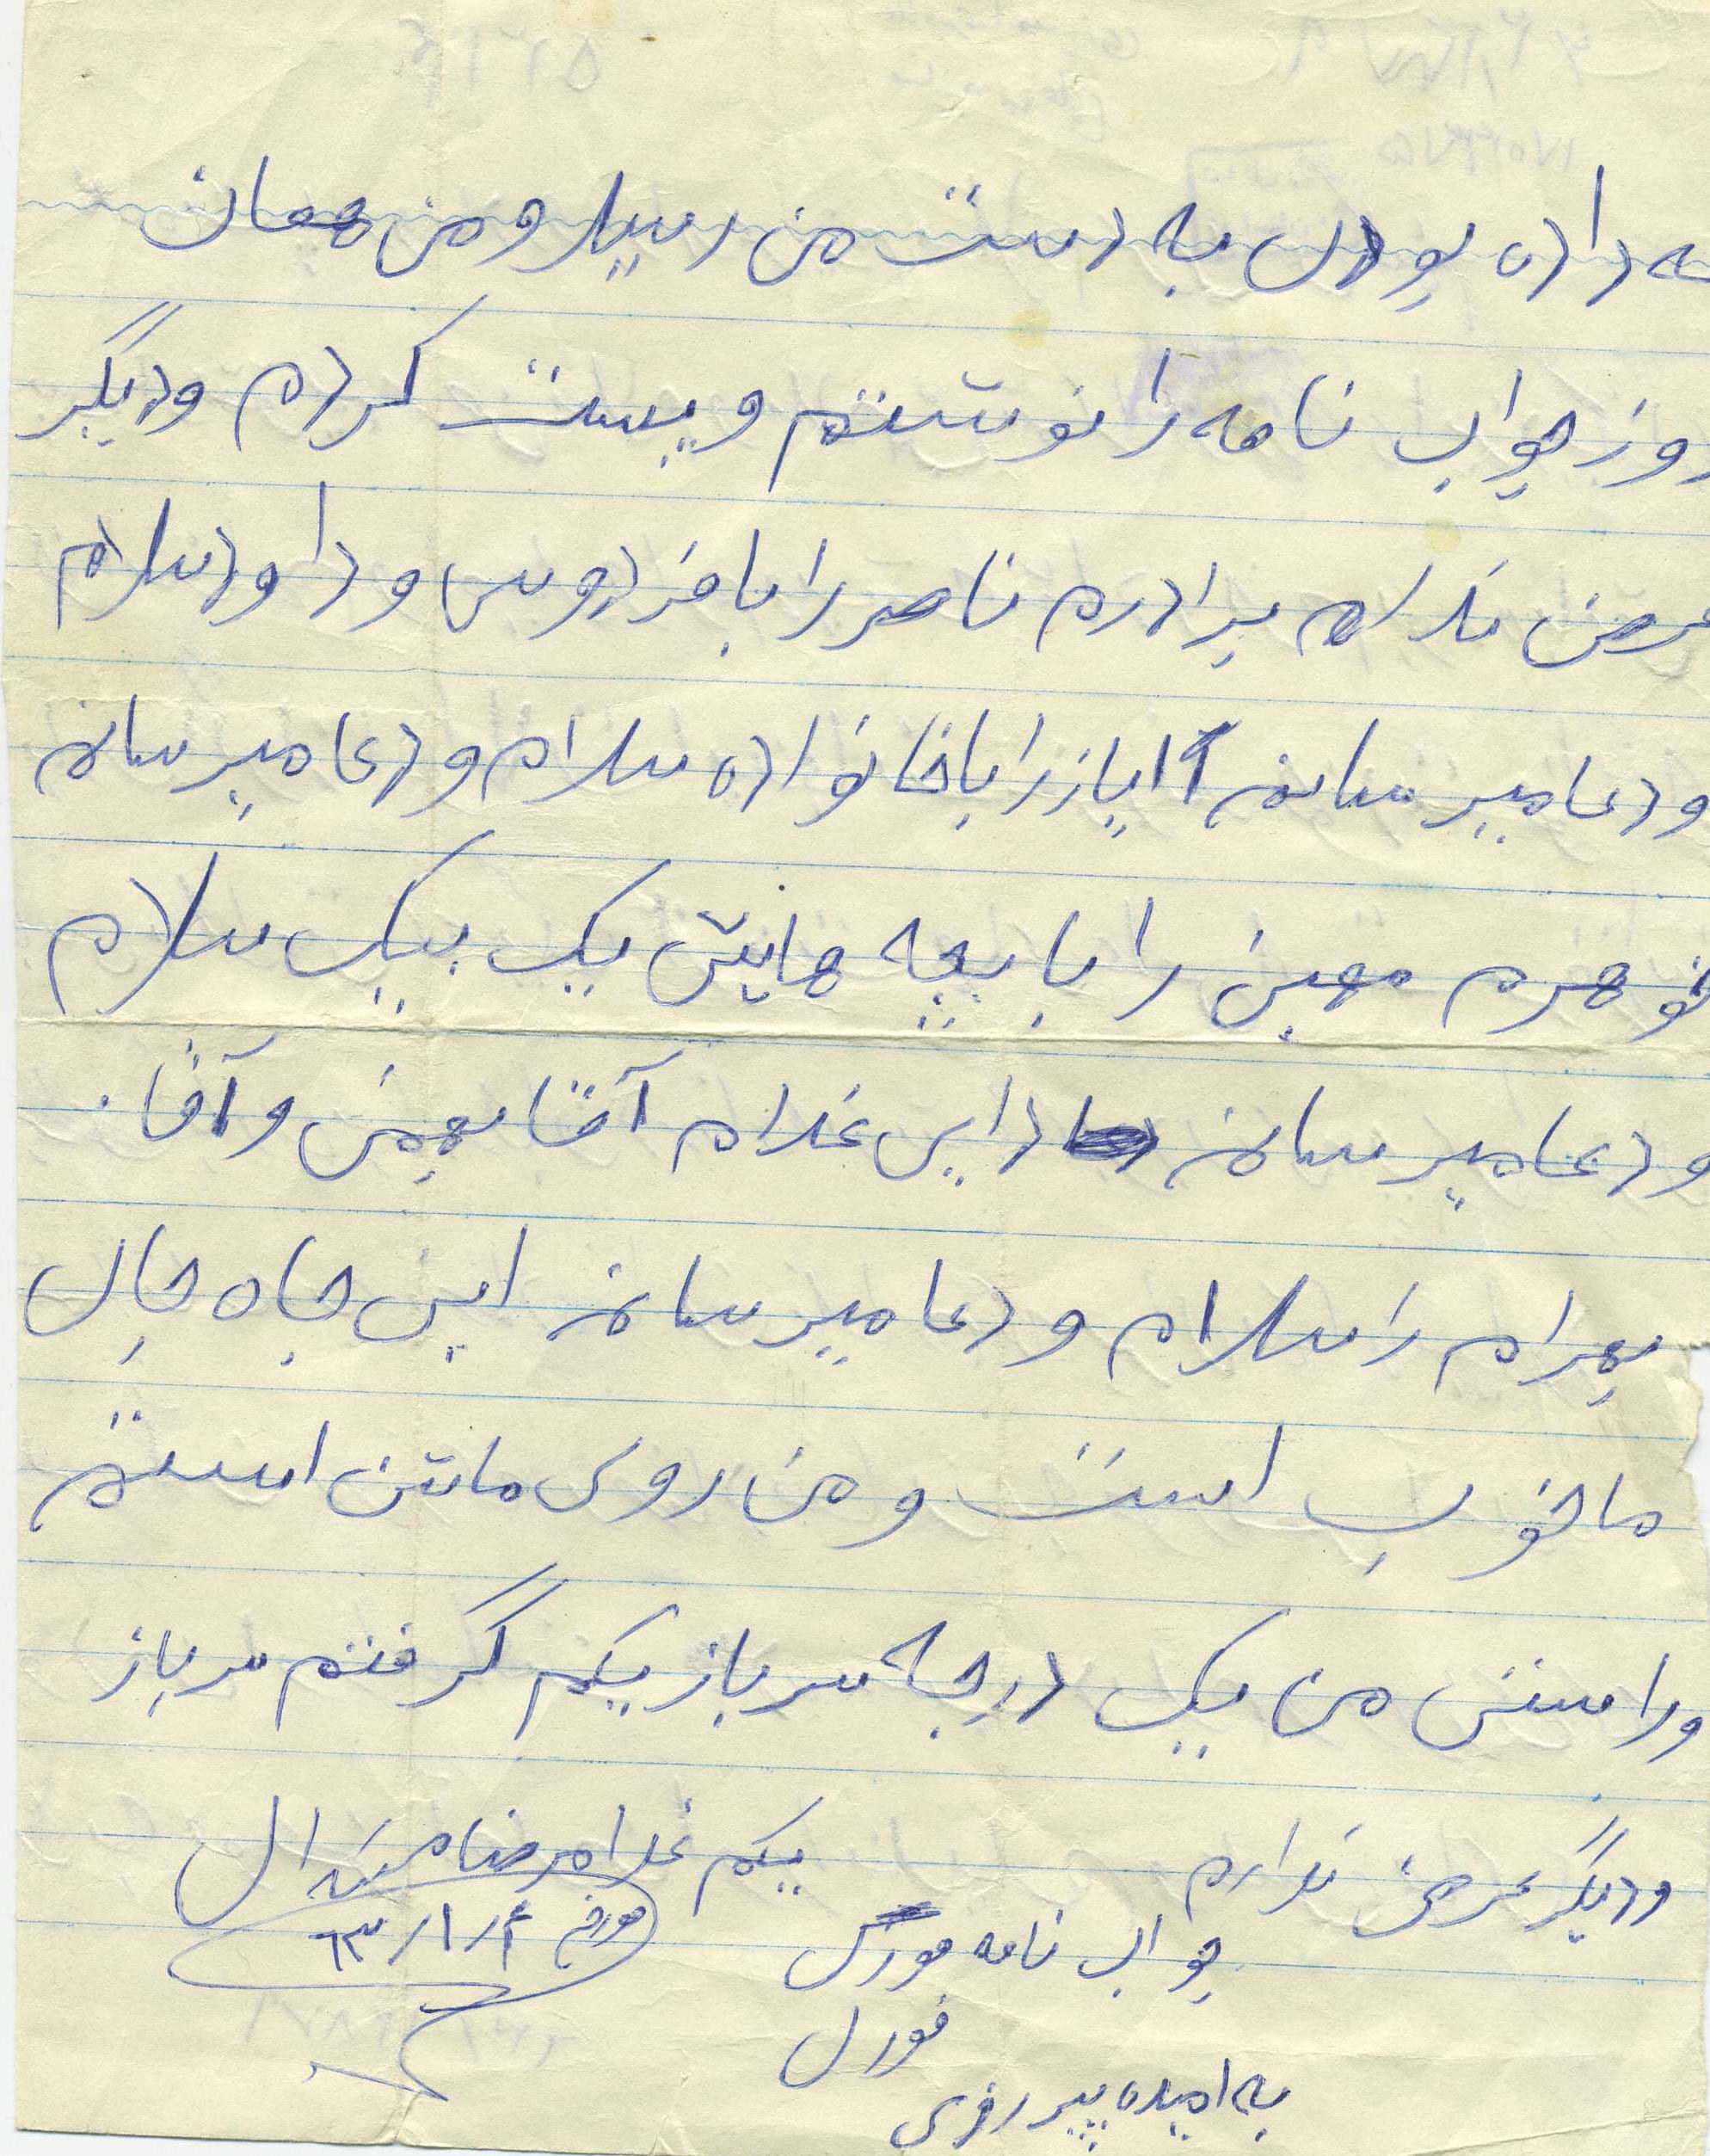 که داده بودی به دست من رسید و من همان
روز جواب نامه را نوشتم و پست کردم و دیگر
عرض ندارم برادرم ناصر را با فردوس و داود سلام
و دعا میرسانم ایاز را با خانواده سلام و دعا میرسانم
خوهرم مهین را با بچه هایش یک بیک سلام
و دعا میرسانم دایی غلام آقا بهمن و آقا
بهرام را سلام و دعا میرسانم این جاه حال
ما خوب است و من روی ماشین استم
و راستی من یک درجه سرباز یکم گرفتم سرباز
یکم غلامرضا
و دیگر عرض ندارم
مورخ ۶۳/۱/۴
جواب نامه فوری
فوری
به امیده پیروزی